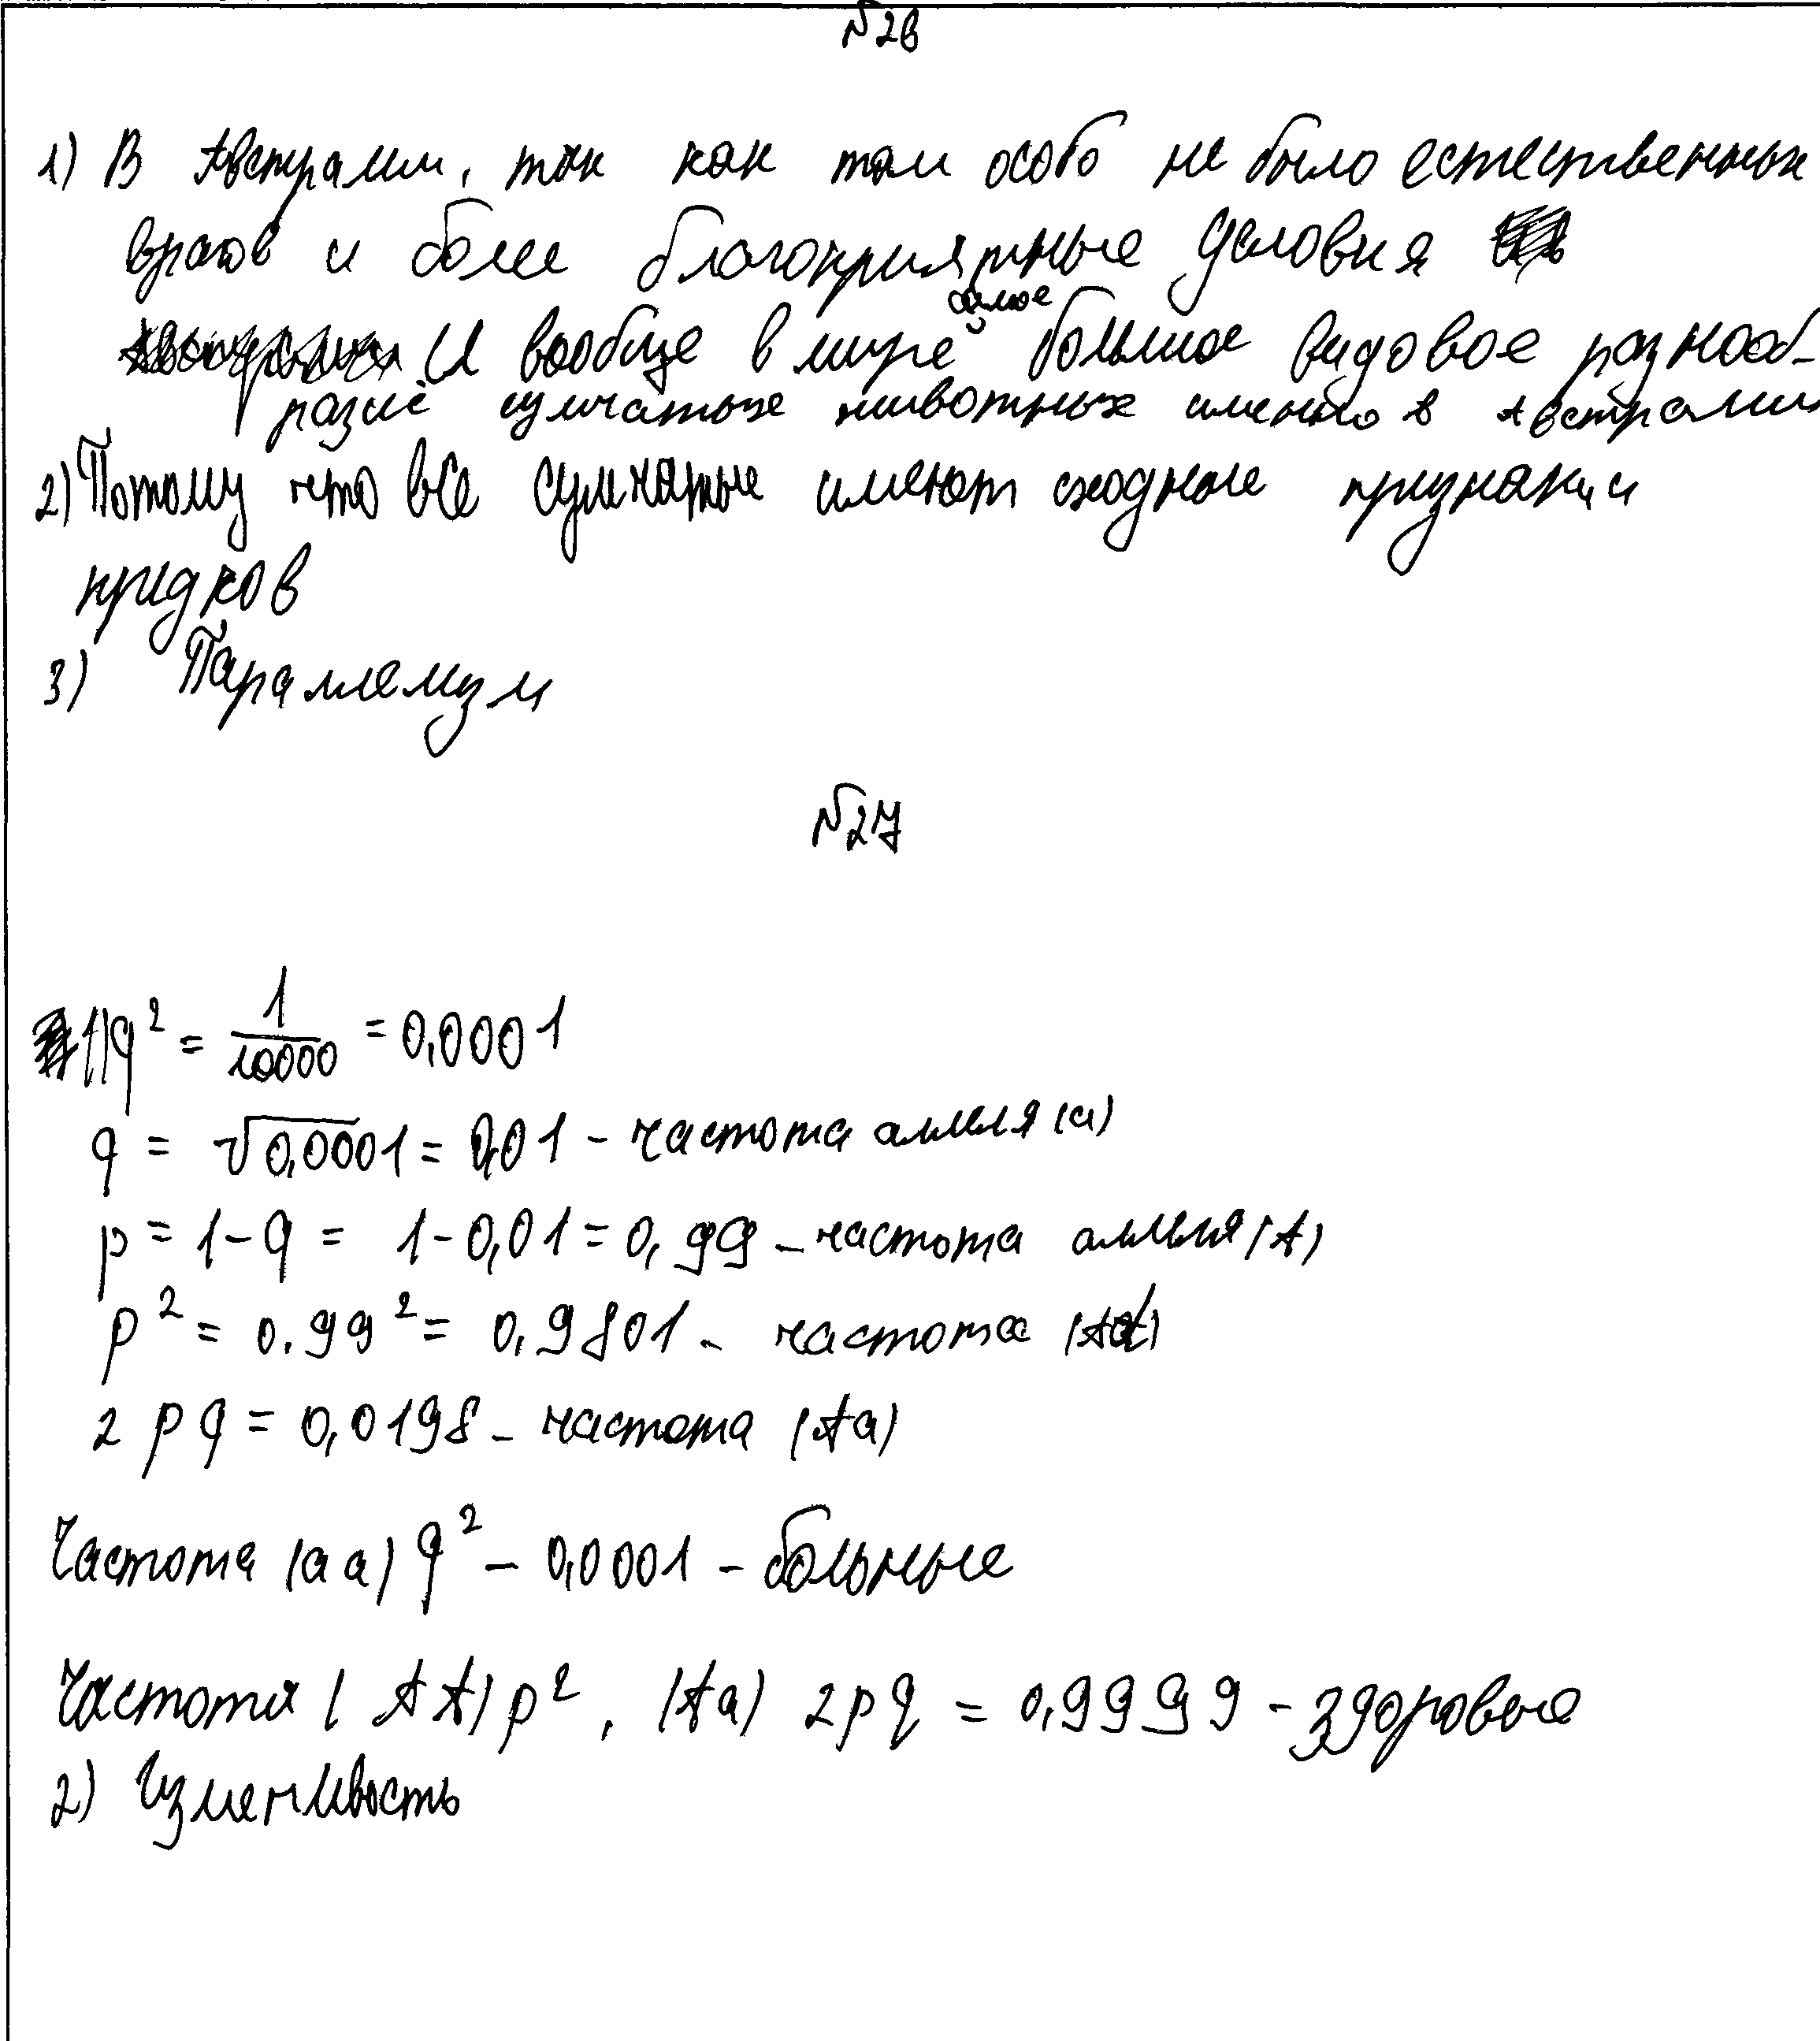 №26
1) В Австралии, так как там особо не было естественных
врагов и более благоприятные условия
И вообще в мире самое большое видовое разнооб-
разие сумчатых животных именно в Австралии
2) Потому что все сумчатые имеют сходные признаки
предков
3) Параллелизм
№27
1) q² = 1/10000 = 0,0001
q = √0,0001 = 0,01 - частота аллеля (a)
p = 1 - q = 1 - 0,01 = 0,99 - частота аллеля (A)
p² = 0.99² = 0,9801 - частота (AA)
2pq = 0,0198 - частота (Aa)
Частота (aa) q² - 0,0001 - больные
Частота (AA) p², (Aa) 2pq = 0,9999 - здоровые
2) Изменчивость